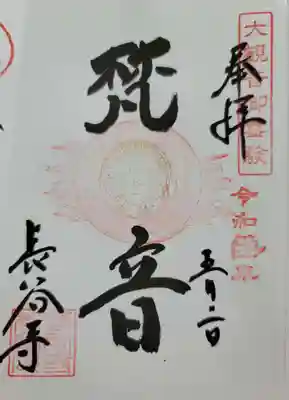 大観音御霊験
奉拝
令和
五月二日
梵音
長谷寺